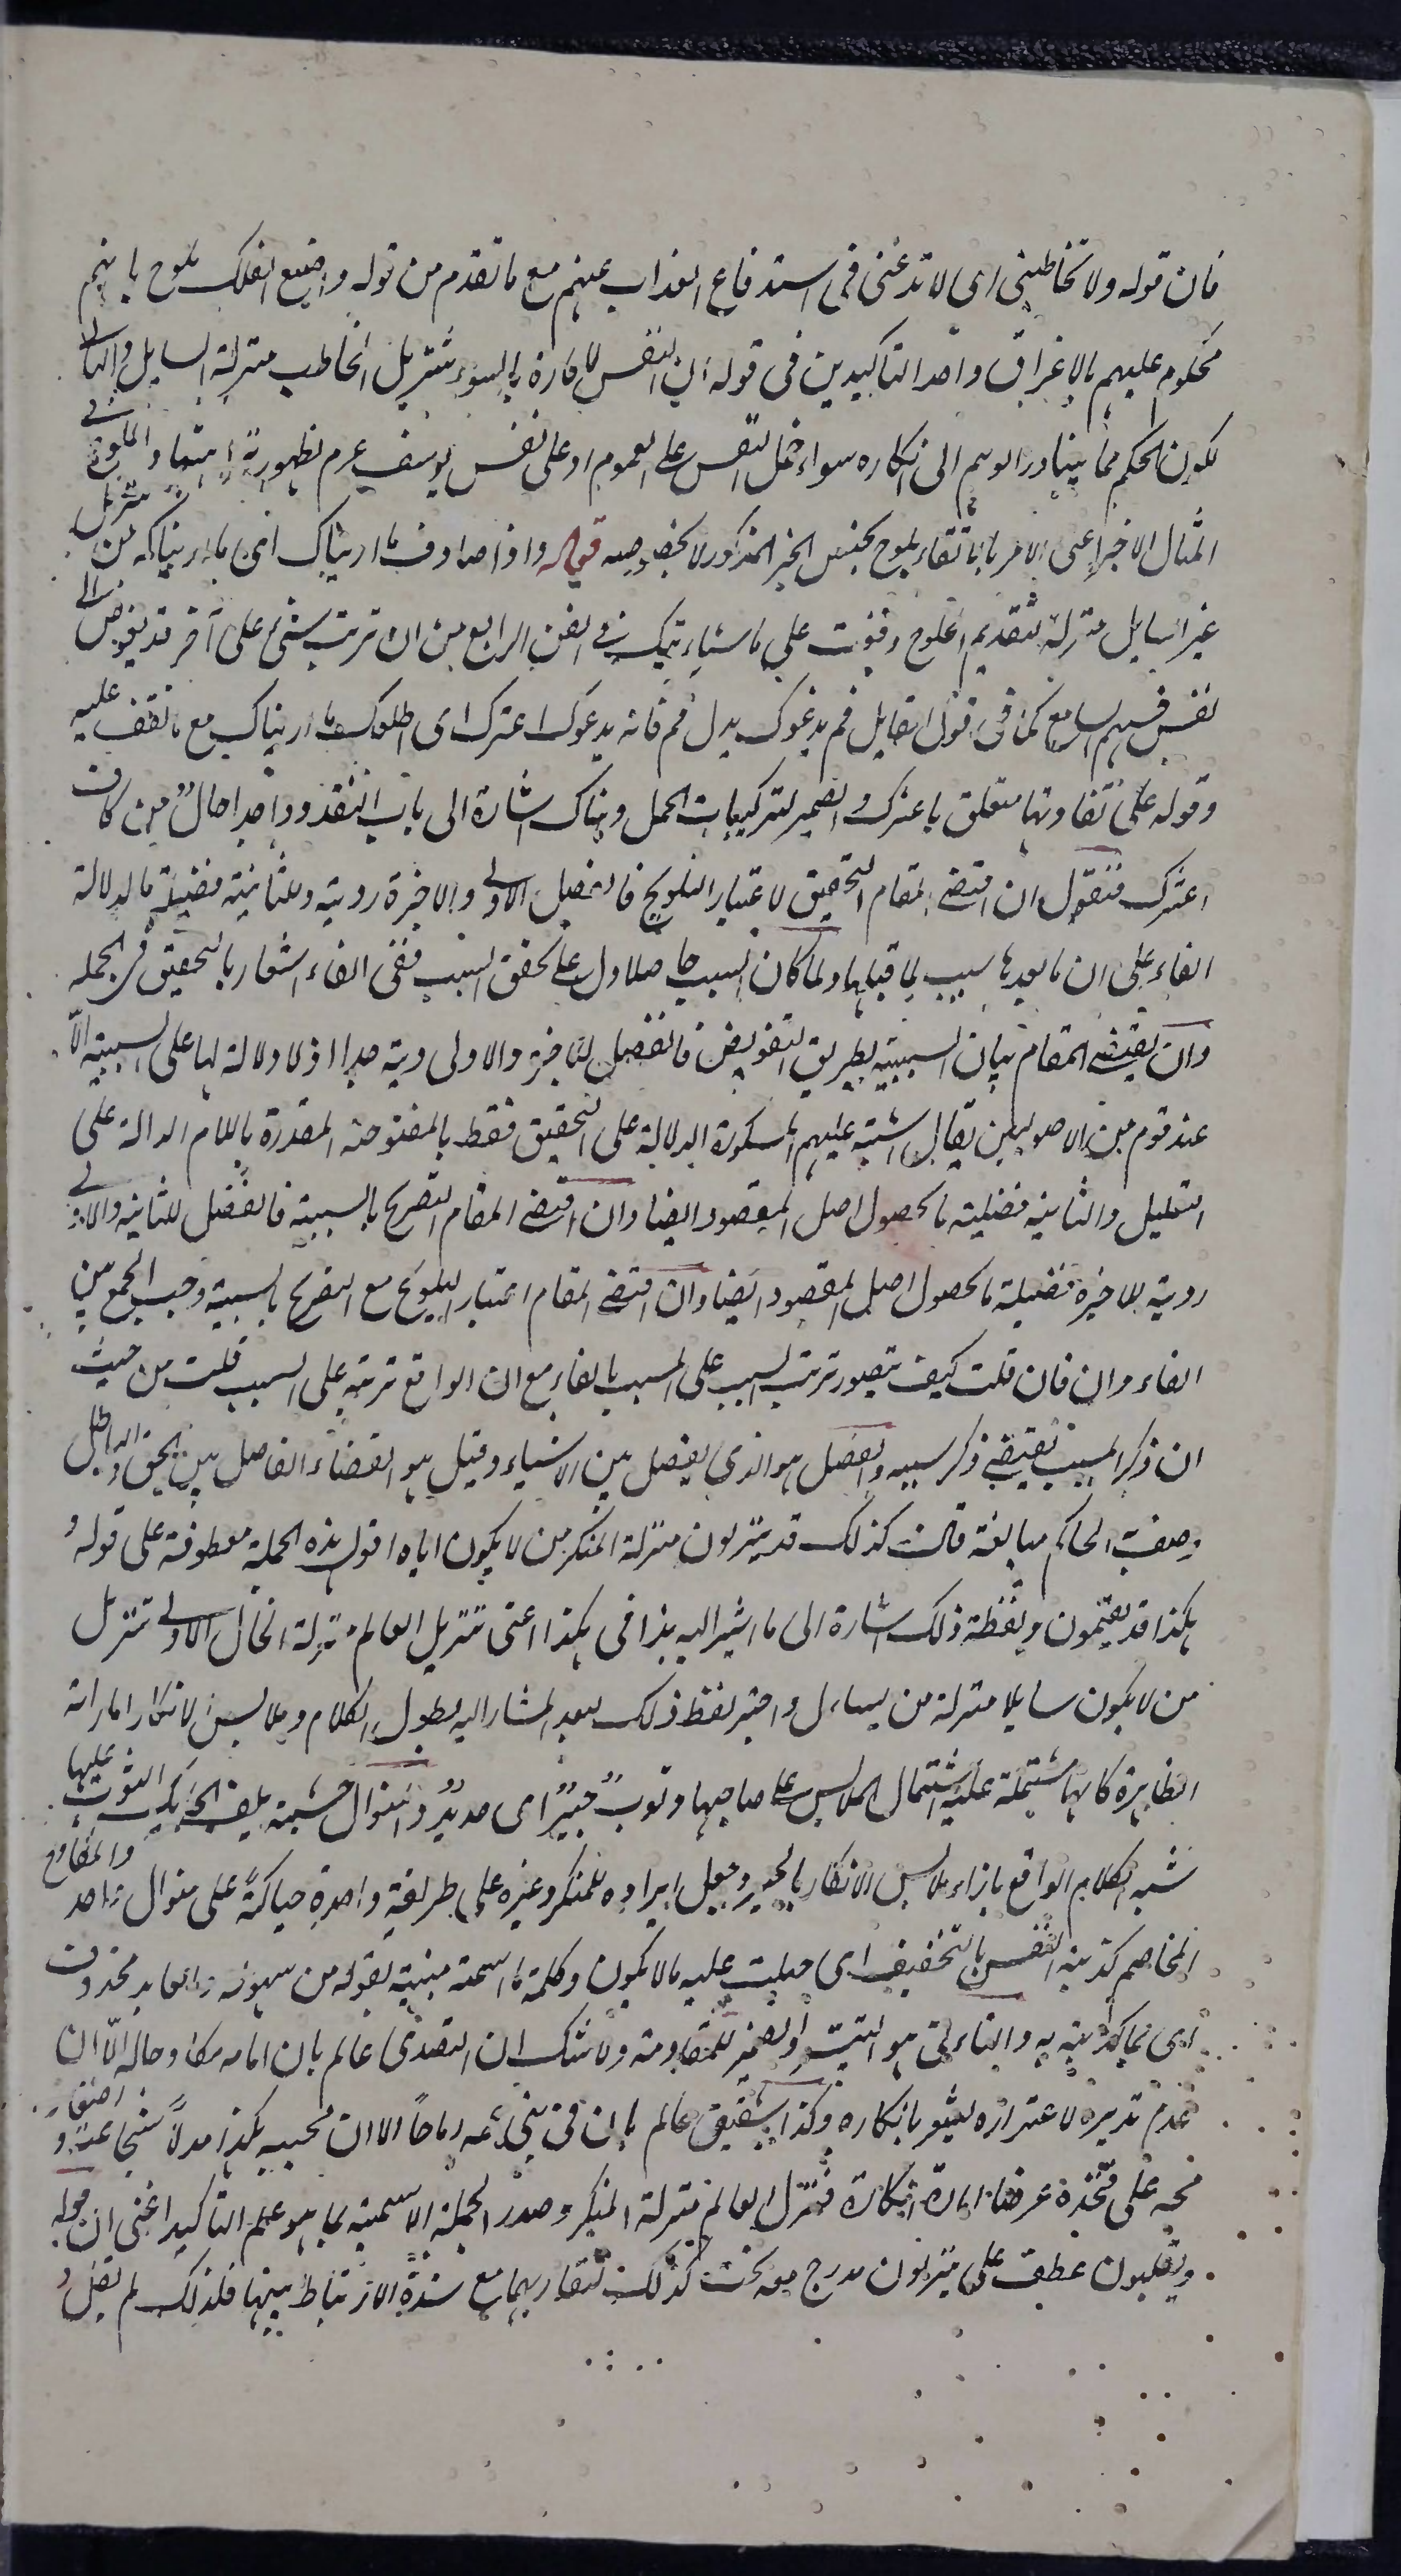 فان قوله ولا تخاطبنى اى لا تدعنى فى استدفاع العذاب عنهم مع ما تقدم من قوله واصنع الفلك يلوح بانهم
محكوم عليهم بالاغراق واحد التاكيدين فى قوله ان النفس لامارة بالسوء لتنزيل المخاطب منزلة السايل والثانى
لكون الحكم مما يتبادر الوهم الى انكاره سواء حمل النفس على العموم او على نفس يوسف عم لظهور نزاهتها والملوح فى
المثال الاخير اعنى الامر باتقاء يلوح بجنس الخبر المذكور لا بخصوصه قوله واذا صادف ما اريناك اى ما اريناكه من تنزيل
غير السايل منزلته لتقديم الملوح وقفت على ما سياتيك فى الفن الرابع من ان ترتب شئ على آخر قد يفوض الى
نفس فهم السامع كما فى قول القايل قم يدعوك بدل قم فانه يدعوك اعترك اى اطلعك ما اريناك مع ما تقف عليه
وقوله على تفاوتها متعلق باعترك والضمير لتركيبات الجمل وهناك اشارة الى باب النقد وواحدا حال من كاف
اعترك فنقول ان اقتضى المقام التحقيق لاعتبار التلويح فالفضل للاولى والاخيرة ردية وللثانية فضيلة ما لدلالة
الفاء على ان ما بعدها سبب لما قبلها ولما كان السبب حاصلا دل على تحقق السبب ففى الفاء اشعار بالتحقيق فى الجملة
وان يقتضى المقام بيان السببية بطريق التفويض فالفضل للاخيرة والاولى ردية جدا اذ لا دلالة لها على السببية الا
عند قوم من الاصوليين يقال اشتبه عليهم المكسورة الدالة على التحقيق فقط بالمفتوحة المقدرة باللام الدالة على
التعليل والثانية فضلية ما لحصول اصل المقصود ايضا وان اقتضى المقام التصريح بالسببية فالفضل للثانية والاولى
ردية للاخيرة فضيلة ما لحصول اصل المقصود ايضا وان اقتضى المقام اعتبار التلويح مع التصريح بالسببية وجب الجمع بين
الفاء وان فان قلت كيف يتصور ترتب السبب على المسبب بالفاء مع ان الواقع ترتبه على السبب قلت من حيث
ان ذكر المسبب يقتضى ذكر سببه والفصل هو الذى يفصل بين الاشياء وقيل هو القضاء الفاصل بين الحق والباطل
وصف الحاكم مبالغة قالت كذلك قد ينزلون منزلة المنكر من لا يكون اياه اقول هذه الجملة معطوفة على قوله و
هكذا قد يقيمون ولفظة ذلك اشارة الى ما اشير اليه بذا فى هكذا اعنى تنزيل العالم منزلة الخالى الاولى تنزيل
من لا يكون سايلا منزلة من يسال واختير لفظ ذلك لبعد المشار اليه بطول الكلام وملابس الانكار اماراته
الظاهرة كانها مشتملة عليه اشتمال الملابس على صاحبها وثوب حبير اى جديد والمنوال خشبة يلف الحايك الثوب عليها
شبه الكلام الواقع بازاء ملابس الانكار بالحبير وجعل ايراده للمنكر وغيره على طريقة واحدة حياكة على منوال واحد والمقاوح
المخاصم كذبته النفس بالتخفيف اى جبلت عليه ما لا يكون وكلمة ما اسمية مبنية بقوله من سهوه والعايد محذوف
اى بما كذبته به والتاء لتى هو التيت او لضمير للمقاومة ولا شك ان التصدى عالم بان امامه مكا وحاله الا ان
عدم تدبره لاغتراره يشعر بانكاره وكذا شقيق عالم بان فى بنى عمه رماحا الا ان مجيئه هكذا مدلا شجاعته و
فجه على فخذه عرضا امارة انكاره فنزل العالم منزلة المنكر وصدر الجملة الاسمية بما هو علم التاكيد اعنى ان قوله
ويقلبون عطف على ينزلون مدرج معه تحت كذلك لتقاربهما مع شدة الارتباط بينهما فلذلك لم يقل و